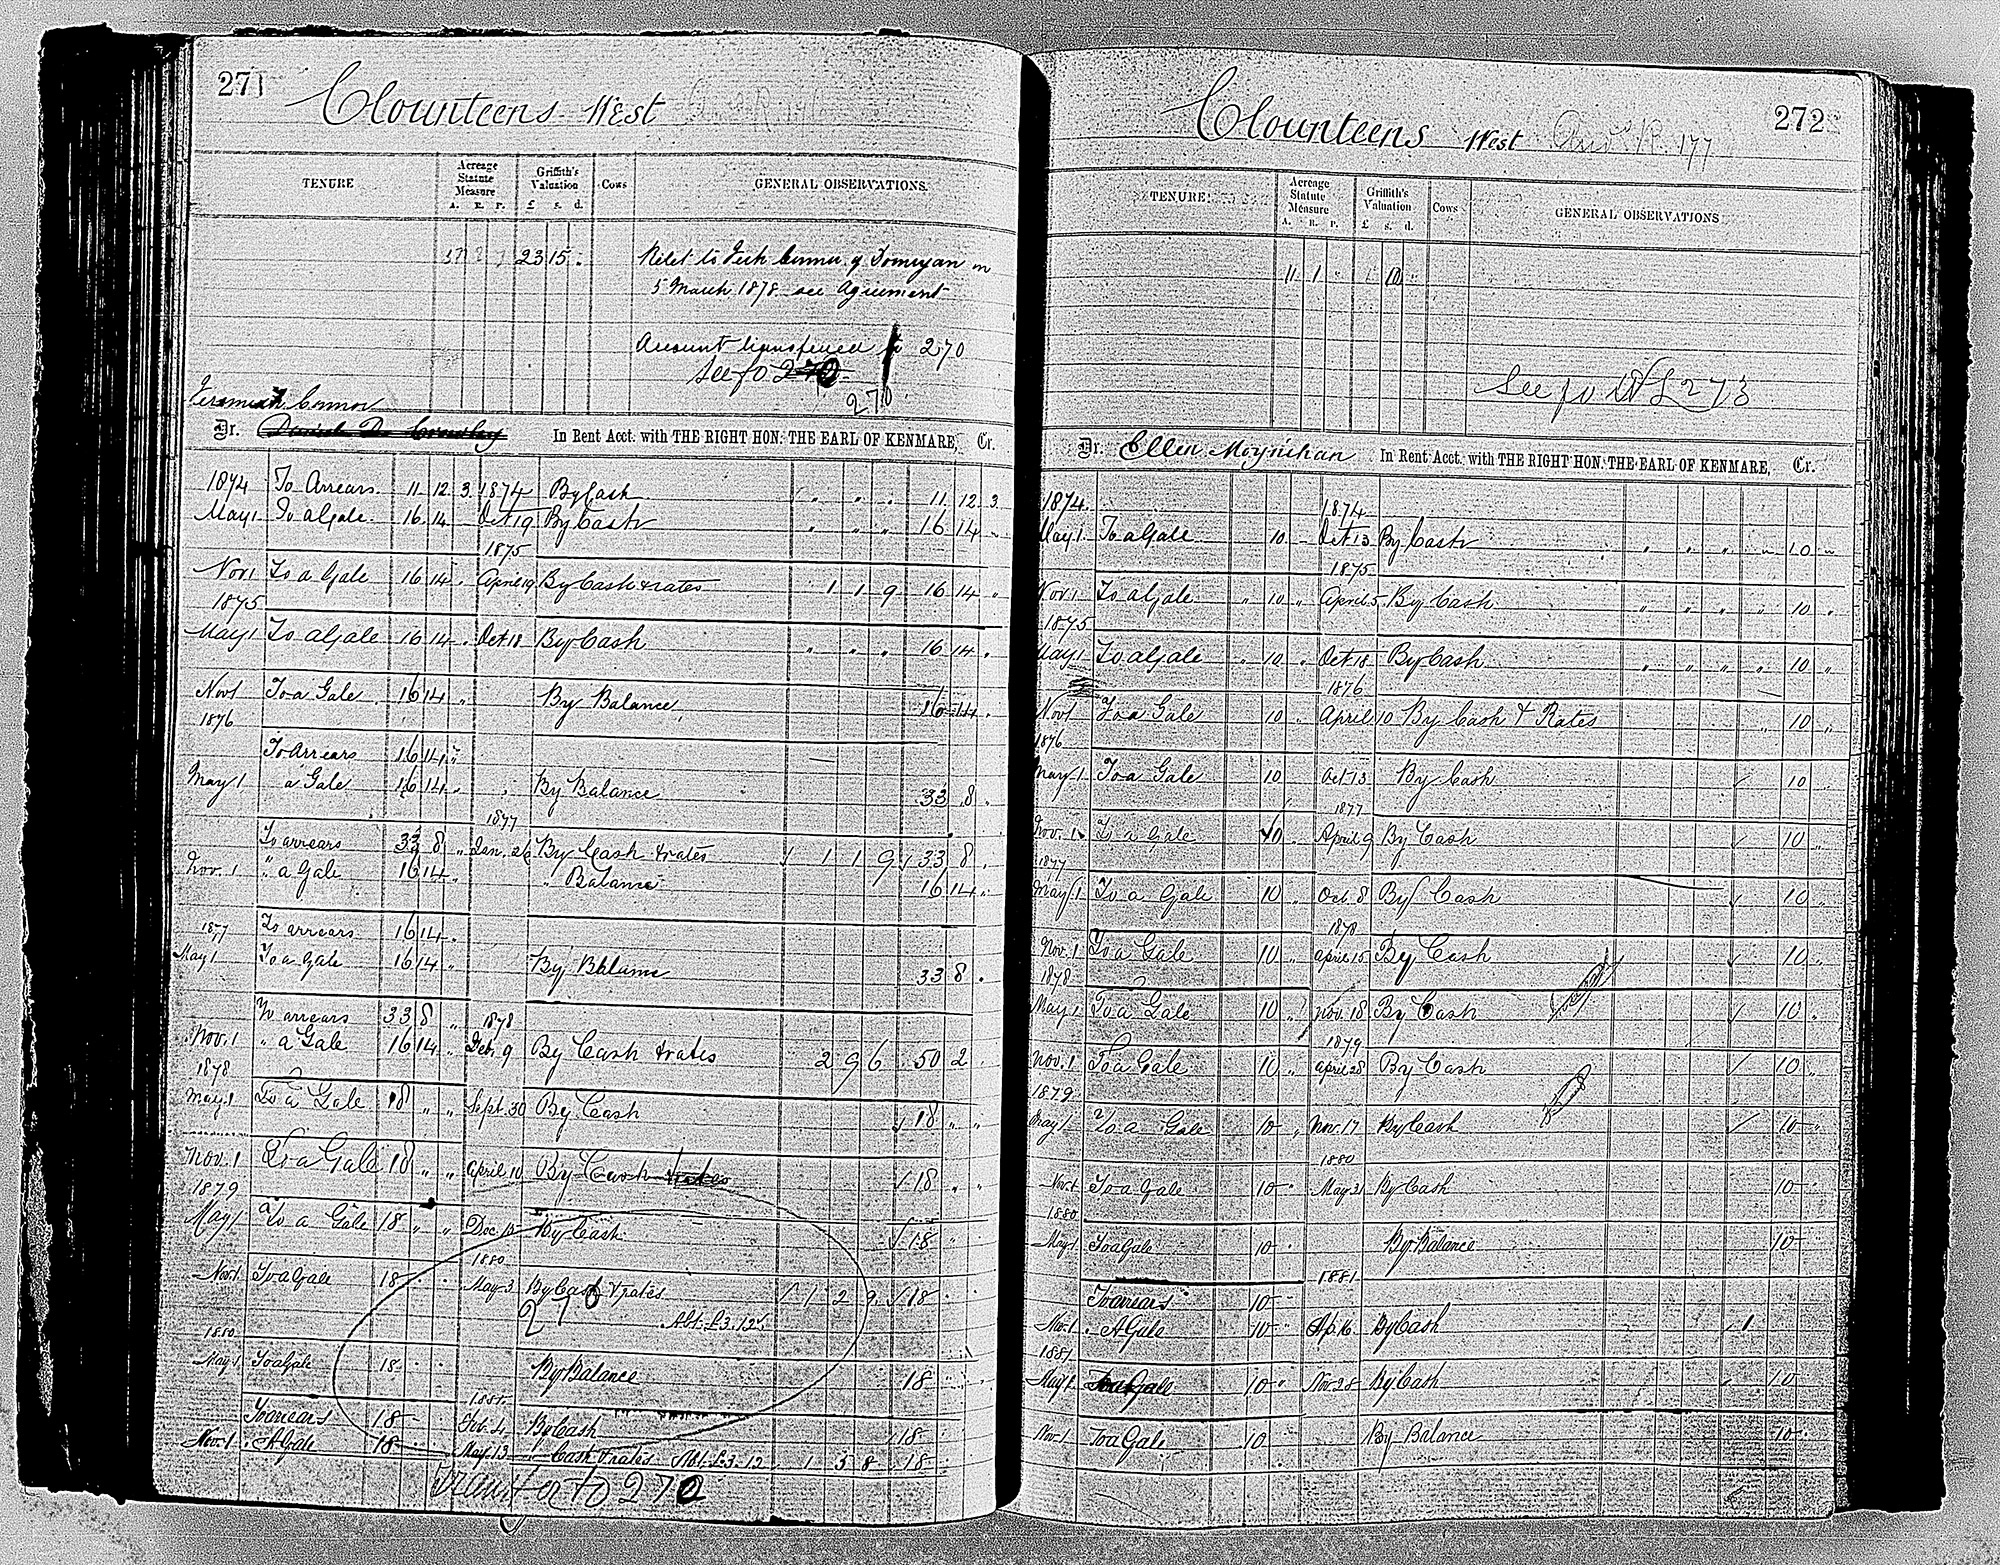 271
Clounteens West
TENURE Acreage Statute Measure A. R. P. Griffith's Valuation £ s. d. Cows GENERAL OBSERVATIONS.
23 15 . Relet to Jerh Connor of in
5 March 1878 see Agreement
Account transferred to 270
See fo 270
270
Jeremiah Connor
Dr. In Rent Acct. with THE RIGHT HON: THE EARL OF KENMARE, Cr.
1874 To Arrears 11 12 3 1874 By Cash " " " 11 12 3
May 1 To a Gale 16 14 Oct 19 By Cash " " " 16 14 "
1875
Nov 1 To a Gale 16 14 " April 19 By Cash & rates 1 1 9 16 14 "
1875
May 1 To a Gale 16 14 " Oct 18 By Cash " " " 16 14 "
Nov 1 To a Gale 16 14 " By Balance 16 14 "
1876
To Arrears 16 14 "
May 1 a Gale 16 14 " By Balance 33 8 "
1877
To arrears 33 8 " Jan. 26 By Cash & rates 1 1 9 33 8 "
Nov. 1 " a Gale 16 14 " " Balance 16 14 "
1877 To arrears 16 14 "
May 1 To a Gale 16 14 " By Balance 33 8 "
To arrears 33 8 " 1878
Nov. 1 " a Gale 16 14 " Feb. 9 By Cash & rates 2 9 6 50 2
1878
May 1 To a Gale 18 " " Sept. 30 By Cash 18 " "
Nov. 1 To a Gale 18 " " April 10 By Cash & rates 18 " "
1879
May 1 To a Gale 18 " " Dec By Cash 18 "
1880
Nov. 1 To a Gale 18 May 3 By Cash & rates 1 2 9 18
270 Abt. £3.12
1880
May 1 To a Gale 18 By Balance 18
1881
To arrears 18 Feb. 4 By Cash 18
Nov. 1 " A Gale 18 May 13 " Cash & rates Abt. £3.12 1 3 8 18
Transfer to 270
272
Clounteens West 177
TENURE: Acreage Statute Measure A. R. P. Griffith's Valuation £ s. d. Cows GENERAL OBSERVATIONS
11 1 " 10 "
See fo 273
Dr. Ellen Moynihan In Rent Acct. with THE RIGHT HON: THE EARL OF KENMARE, Cr.
1874 1874
May 1 To a Gale 10 " Oct 13 By Cash " " " " 10 "
1875
Nov. 1 To a Gale " 10 " April 5 By Cash " " " " 10 "
1875
May 1 To a Gale " 10 " Oct 18 By Cash " " " " 10 "
1876
Nov 1 To a Gale 10 " April 10 By Cash & Rates " 10 "
1876
May 1 To a Gale 10 Oct 13 By Cash 10
1877
Nov. 1 To a Gale 10 " April 9 By Cash 10 "
1877
May 1 To a Gale 10 " Oct 8 By Cash 10 "
1878
Nov. 1 To a Gale 10 " April 15 By Cash 10 "
1878
May 1 To a Gale 10 " Nov. 18 By Cash 10 "
1879
Nov. 1 To a Gale 10 " April 28 By Cash 10 "
1879
May 1 To a Gale 10 " Nov. 17 By Cash 10
1880
Nov. 1 To a Gale 10 May 31 By Cash 10
1880
May 1 To a Gale 10 By Balance 10
1881
To arrears 10
Nov. 1 " A Gale 10 Ap 16 By Cash 1
1881
May 1 To a Gale 10 " Nov 28 By Cash 10
Nov. 1 To a Gale 10 By Balance 10